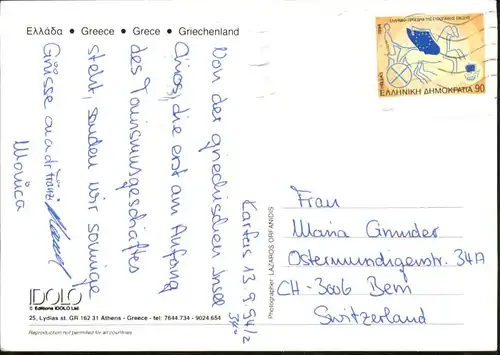 Ελλάδα • Greece • Grece • Griechenland
Karfeis 13.9.94/2
Von der griechischen Insel
Chios, die erst am Anfang
des Tourismusgeschäftes
steht, senden wir sonnige
Grüsse
Monica
ΕΛΛΗΝΙΚΗ ΔΗΜΟΚΡΑΤΙΑ 90
HELLAS
1994
Frau
Maria Gmunder
Ostermundigenstr. 34A
CH-3006 Bern
Switzerland
Photographer: LAZAROS ORFANIDIS
IDOLO
© Editions IDOLO Ltd.
25, Lydias st. GR 162 31 Athens - Greece - tel: 7644.734 - 9024.654
Reproduction not permitted for all countries